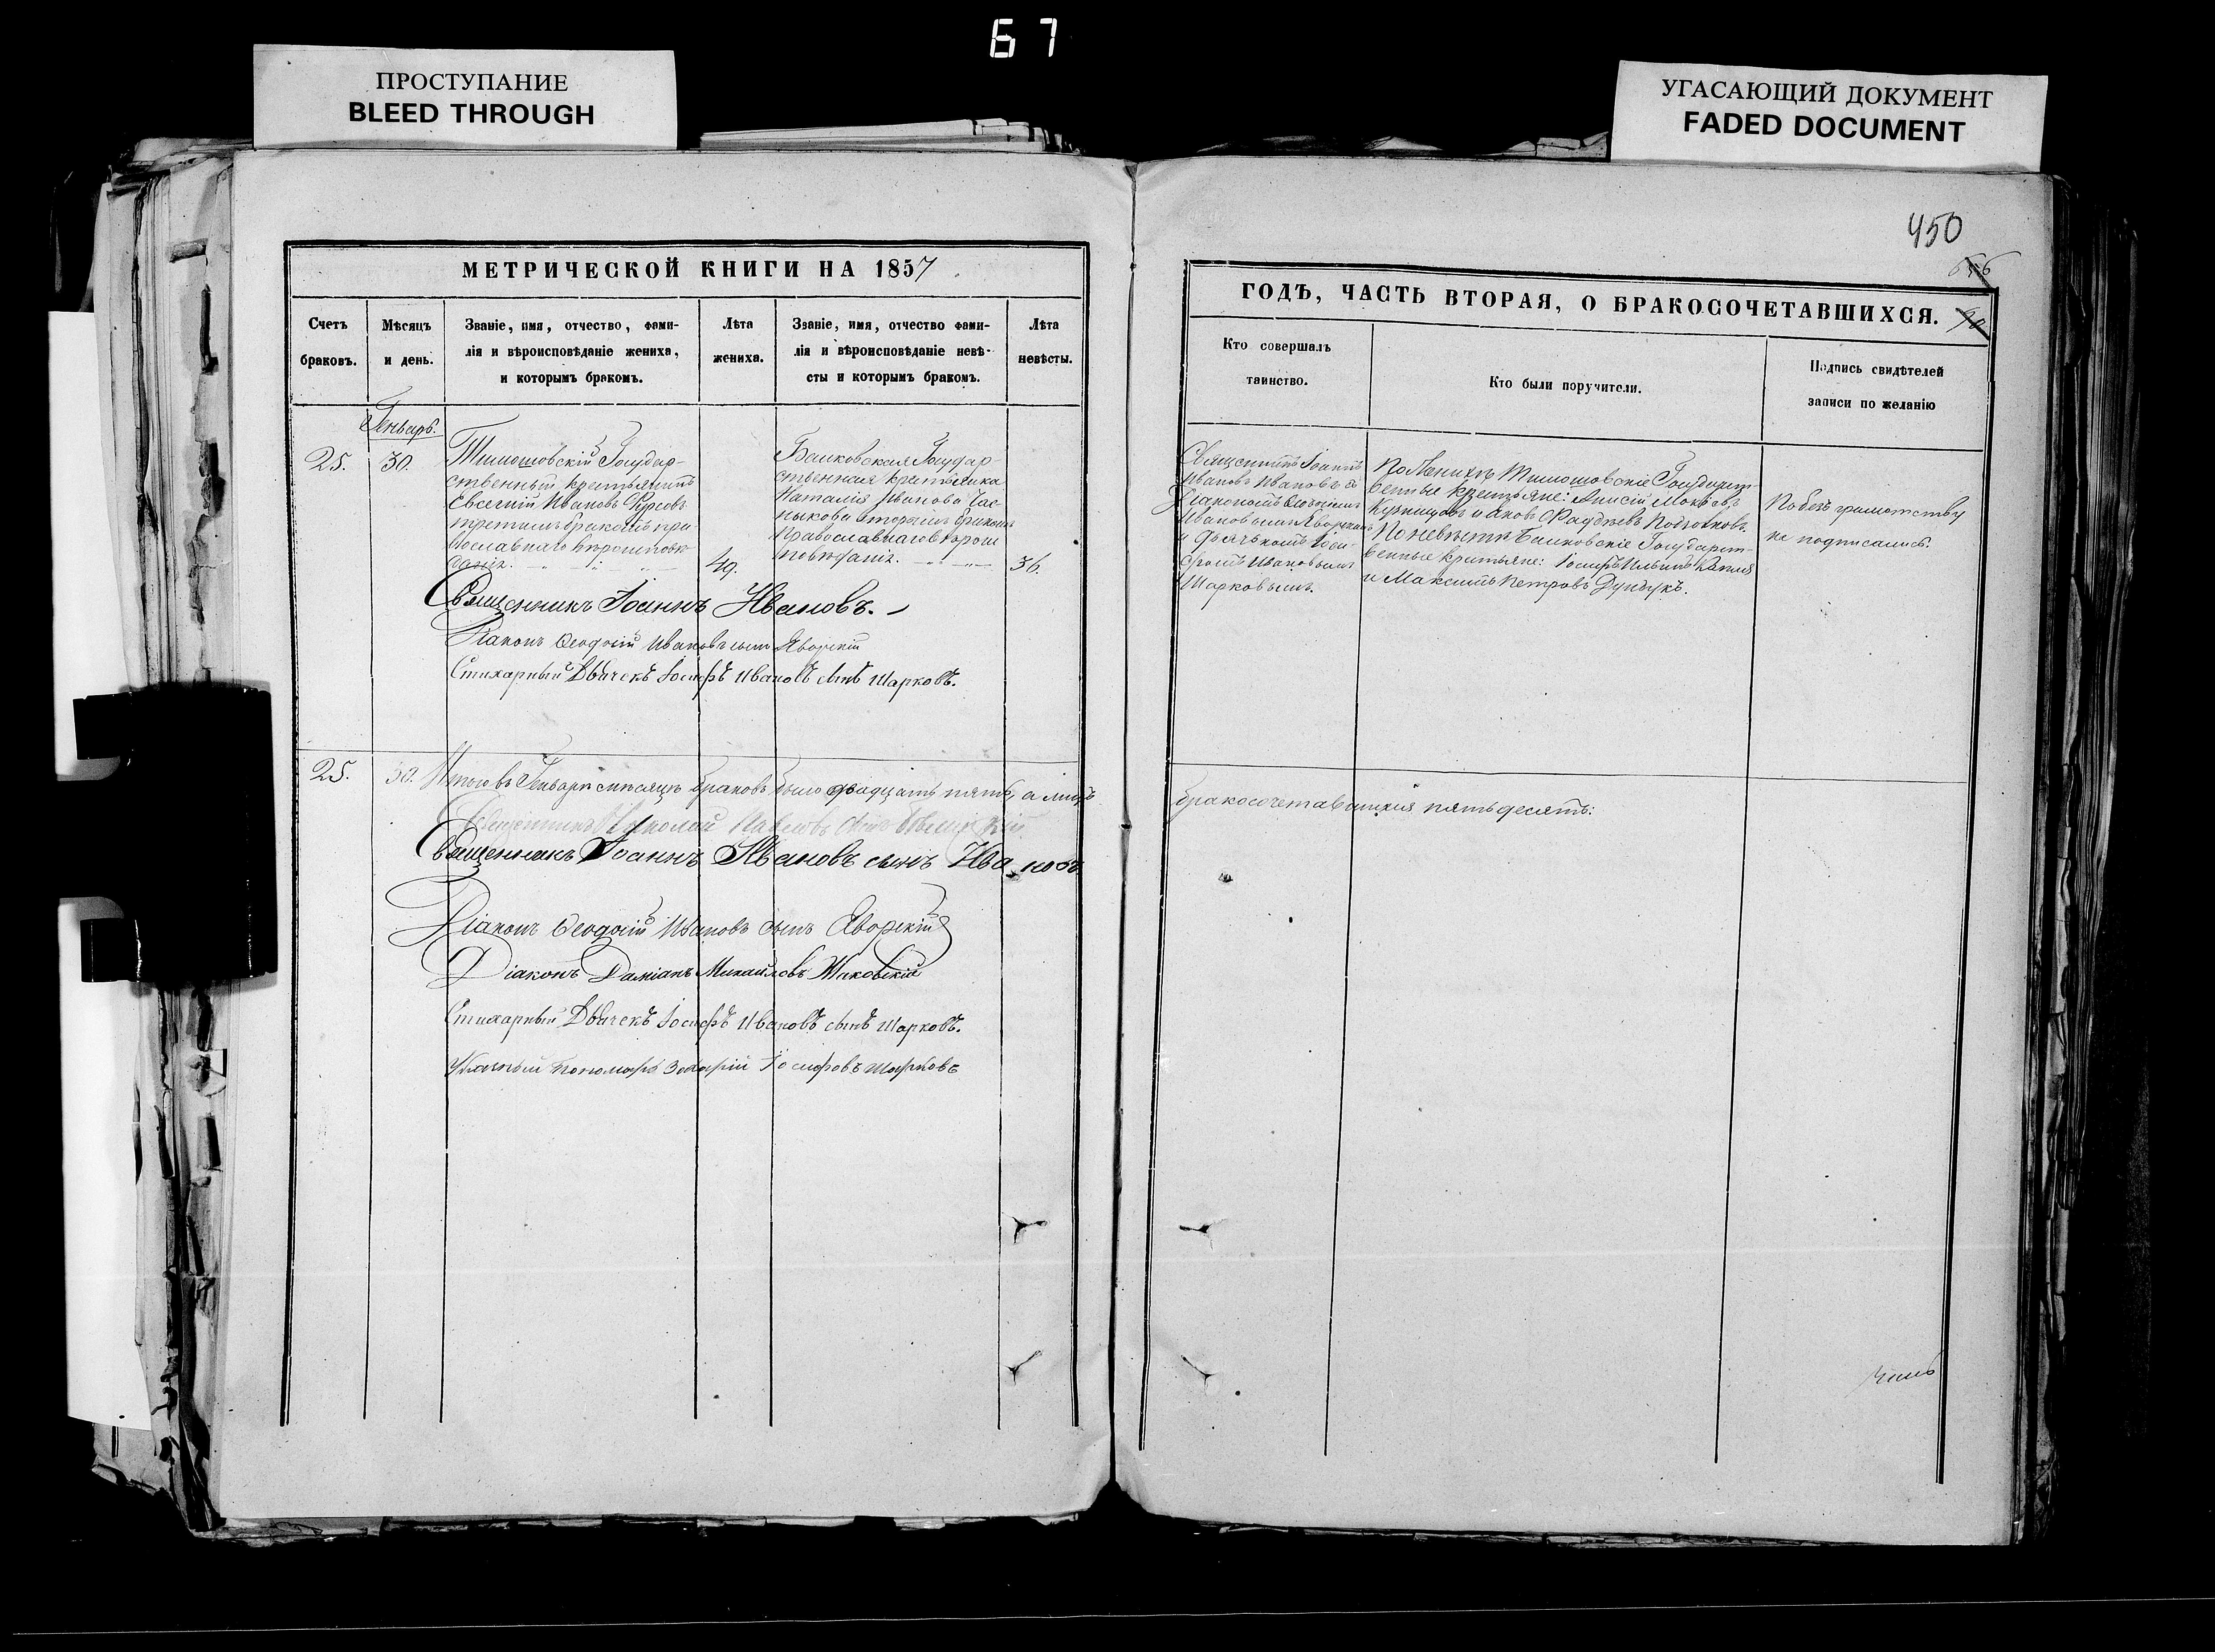 67
ПРОСТУПАНИЕ
BLEED THROUGH
УГАСАЮЩИЙ ДОКУМЕНТ
FADED DOCUMENT
МЕТРИЧЕСКОЙ КНИГИ НА 1857
Счетъ
браковъ.
Мѣсяцъ
и день.
Званіе, имя, отчество, фами-
лія и вѣроисповѣданіе жениха,
и которымъ бракомъ.
Лѣта
жениха.
Званіе, имя, отчество фами-
лія и вѣроисповѣданіе невѣ-
сты и которымъ бракомъ.
Лѣта
невѣсты.
Генварь.
25.
30.
Тимошовскій Государ-
ственный крестьянинъ
Евсегній Ивановъ
третьимъ бракомъ пра
вославнаго вѣроисповѣ
данія.
49.
Государ-
ственная крестьянка
Наталія Иванова
вторымъ бракомъ
Православнаго вѣроис
повѣданія.
36.
Священникъ Іоаннъ Ивановъ.
Діаконъ Ѳеодосій Ивановъ сынъ Яворскій
Стихарный Дьячекъ Іосифъ Ивановъ сынъ Шарковъ.
25.
30.
Итого въ Генварѣ мѣсяцѣ браковъ было двадцать пять, а лицъ
Священникъ Николай Павловъ сынъ
Священникъ Іоаннъ Ивановъ сынъ Ивановъ
Діаконъ Ѳеодосій Ивановъ сынъ Яворскій
Діаконъ Даміанъ Михайловъ
Стихарный Дьячекъ Іосифъ Ивановъ сынъ Шарковъ.
Пономарь Захарій Іосифовъ Шарковъ
450
ГОДЪ, ЧАСТЬ ВТОРАЯ, О БРАКОСОЧЕТАВШИХСЯ.
Кто совершалъ
таинство.
Кто были поручители.
Подпись свидѣтелей
записи по желанію
Священникъ Іоаннъ
Ивановъ Ивановъ съ
Діакономъ Ѳеодосіемъ
Ивановымъ Яворскимъ
и дьячкомъ Іоси-
фомъ Ивановымъ
Шарковымъ.
По женихѣ Тимошовскіе Государст-
венные крестьяне: Анисій
Кузнецовъ и Яковъ
По невѣстѣ Государст-
венные крестьяне: Іосифъ Ильинъ
и Максимъ Петровъ Дундукъ.
По безграмотству
не подписались.
бракосочетавшихся пятьдесятъ: